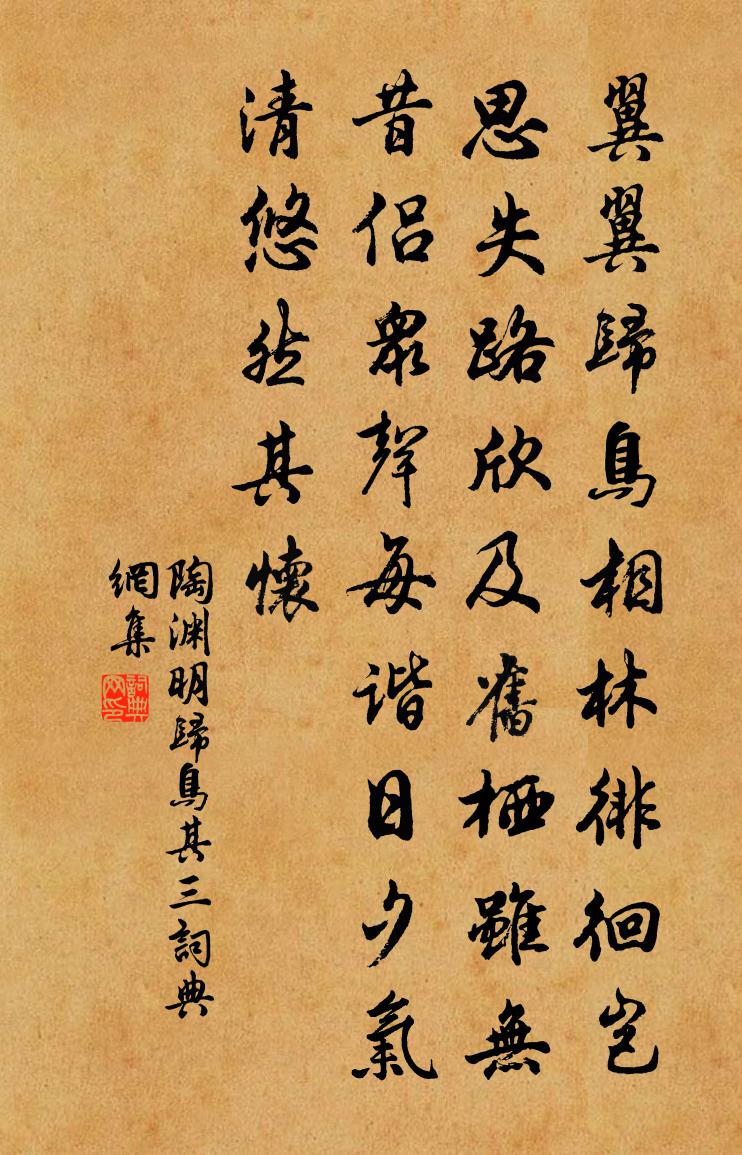 翼翼歸鳥相林徘徊豈
思失路欣及舊栖雖無
昔侶眾聲每諧日夕氣
清悠然其懷
陶渊明歸鳥其三詞典
網集
詞典
网印